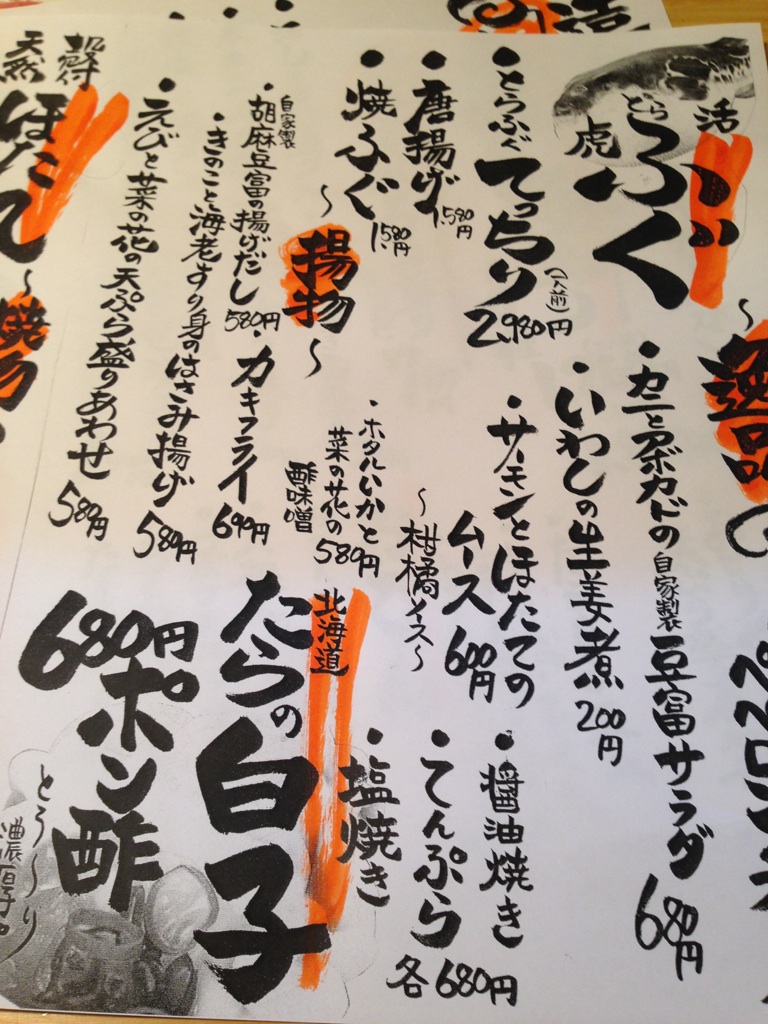 活
とら
虎ふぐ
・とらふぐてっちり
(一人前)
2,980円
・唐揚げ
1,580円
・焼ふぐ
1,580円
～逸品
・カニとアボカドの自家製豆富サラダ
680円
・いわしの生姜煮
200円
・サーモンとほたての
ムース 600円
～柑橘イス～
・ホタルいかと
菜の花の
酢味噌
580円
～揚物～
・自家製
胡麻豆富の揚げだし
580円
・カキフライ
690円
・きのこと海老すり身のはさみ揚げ
580円
・えびと菜の花の天ぷら盛りあわせ
580円
北海道
たらの白子
・醤油焼き
・てんぷら
・塩焼き
各680円
ポン酢
680円
とろ～り
濃厚
天然
ほたて
～焼物
ペペロン